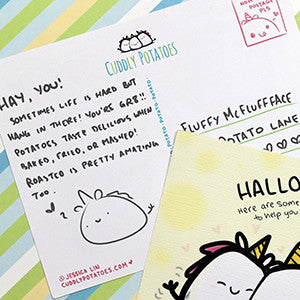 CUDDLY POTATOES
NON-POTATO
POSTAGE
PLS
HAY, YOU!
SOMETIMES LIFE IS HARD BUT
HANG IN THERE! YOU'RE GR8!!
POTATOES TASTE DELICIOUS WHEN
BAKED, FRIED, OR MASHED!
ROASTED IS PRETTY AMAZING
TOO.
FLUFFY MCFLUFFFACE
POTATO LANE
© JESSICA LIU
CUDDLYPOTATOES.COM
HALLO
Here are some
to help you